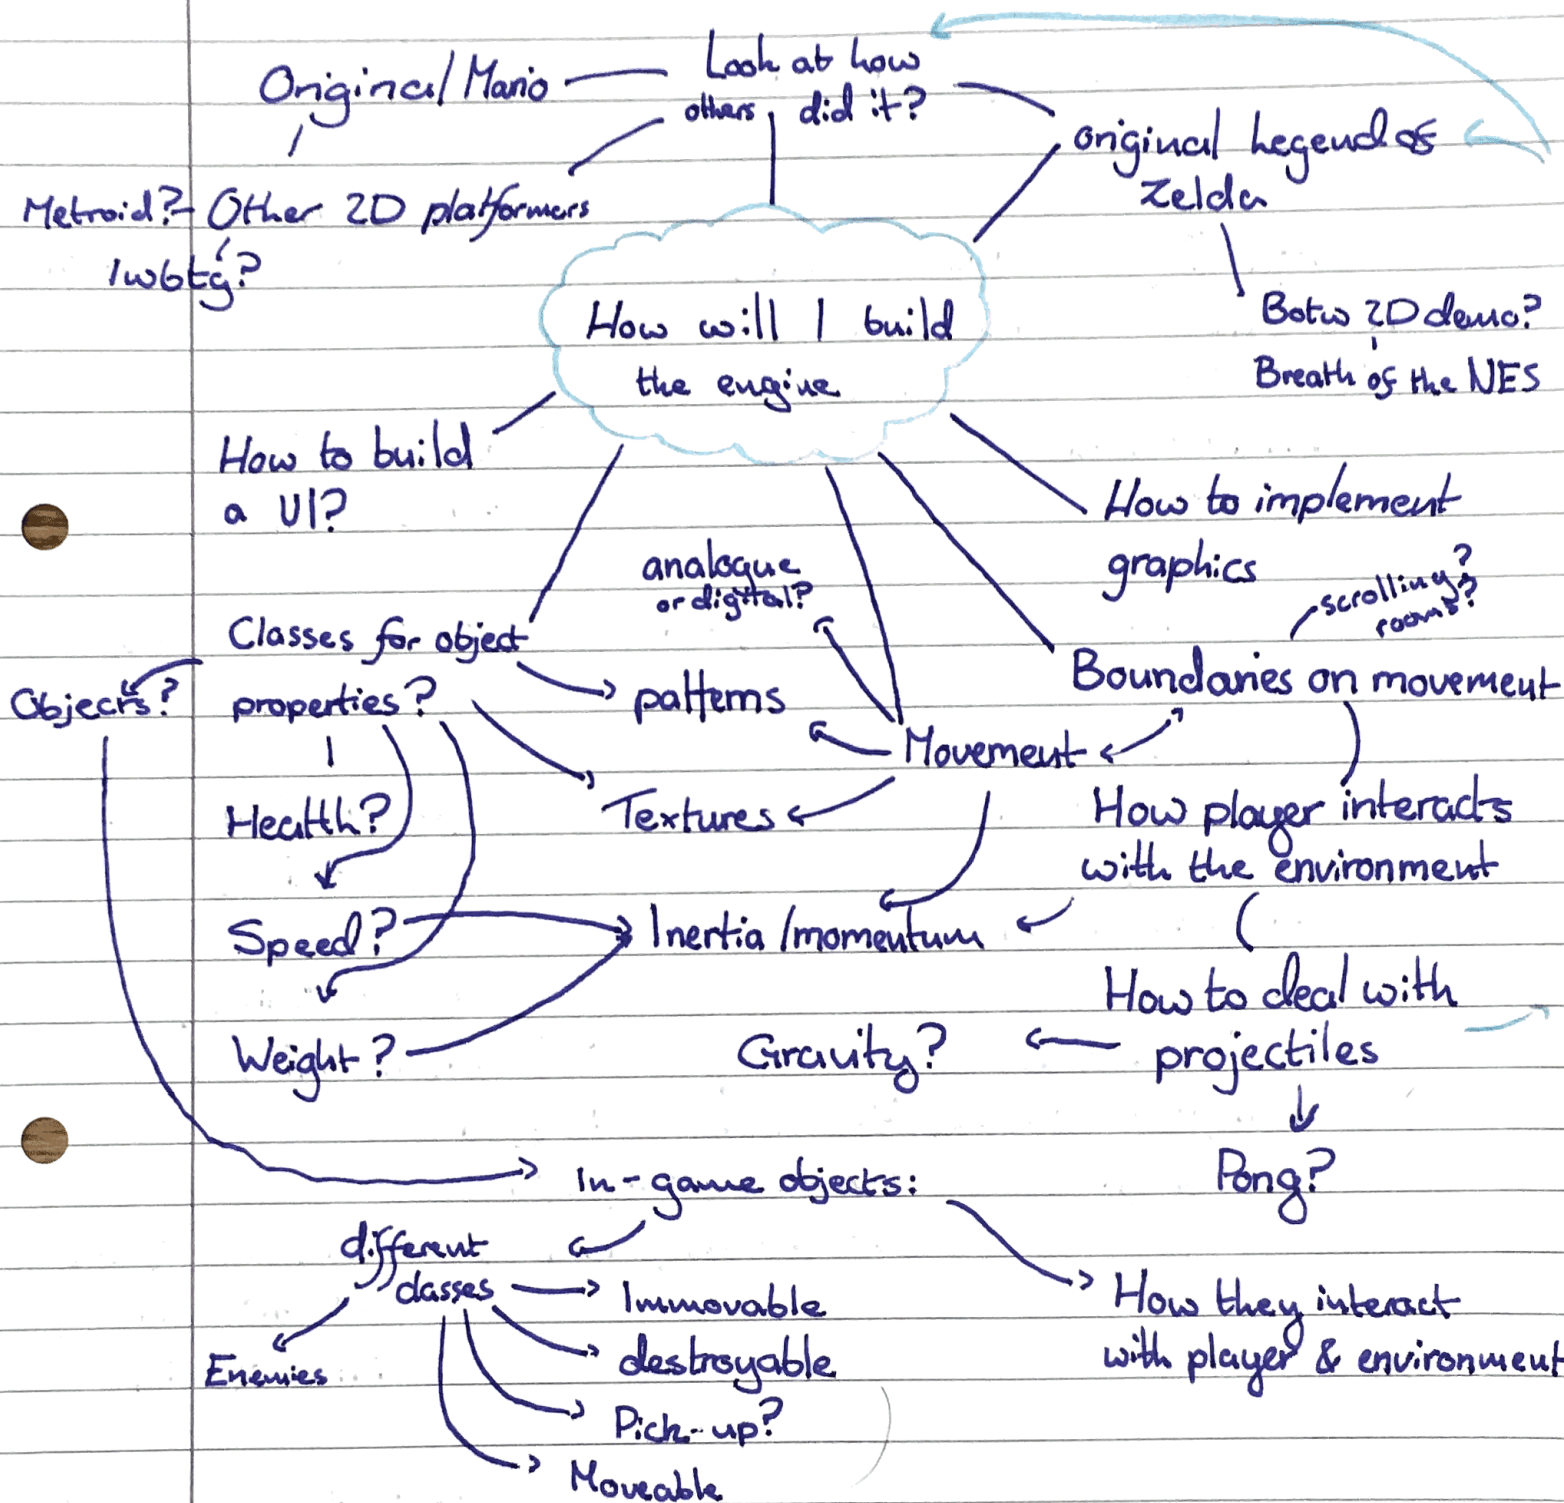 Look at how
others did it?
Original Mario
original Legend of
Zelda
Metroid? - Other 2D platformers
Iwbtg?
Botw 2D demo?
Breath of the NES
How will I build
the engine
How to build
a UI?
How to implement
graphics
analogue
or digital?
scrolling?
rooms?
Classes for object
properties?
Objects?
patterns
Boundaries on movement
Movement
Textures
Health?
How player interacts
with the environment
Speed?
Inertia/momentum
How to deal with
projectiles
Gravity?
Weight?
Pong?
In-game objects:
different
classes
Immovable
destroyable
Pick-up?
Moveable
Enemies
How they interact
with player & environment